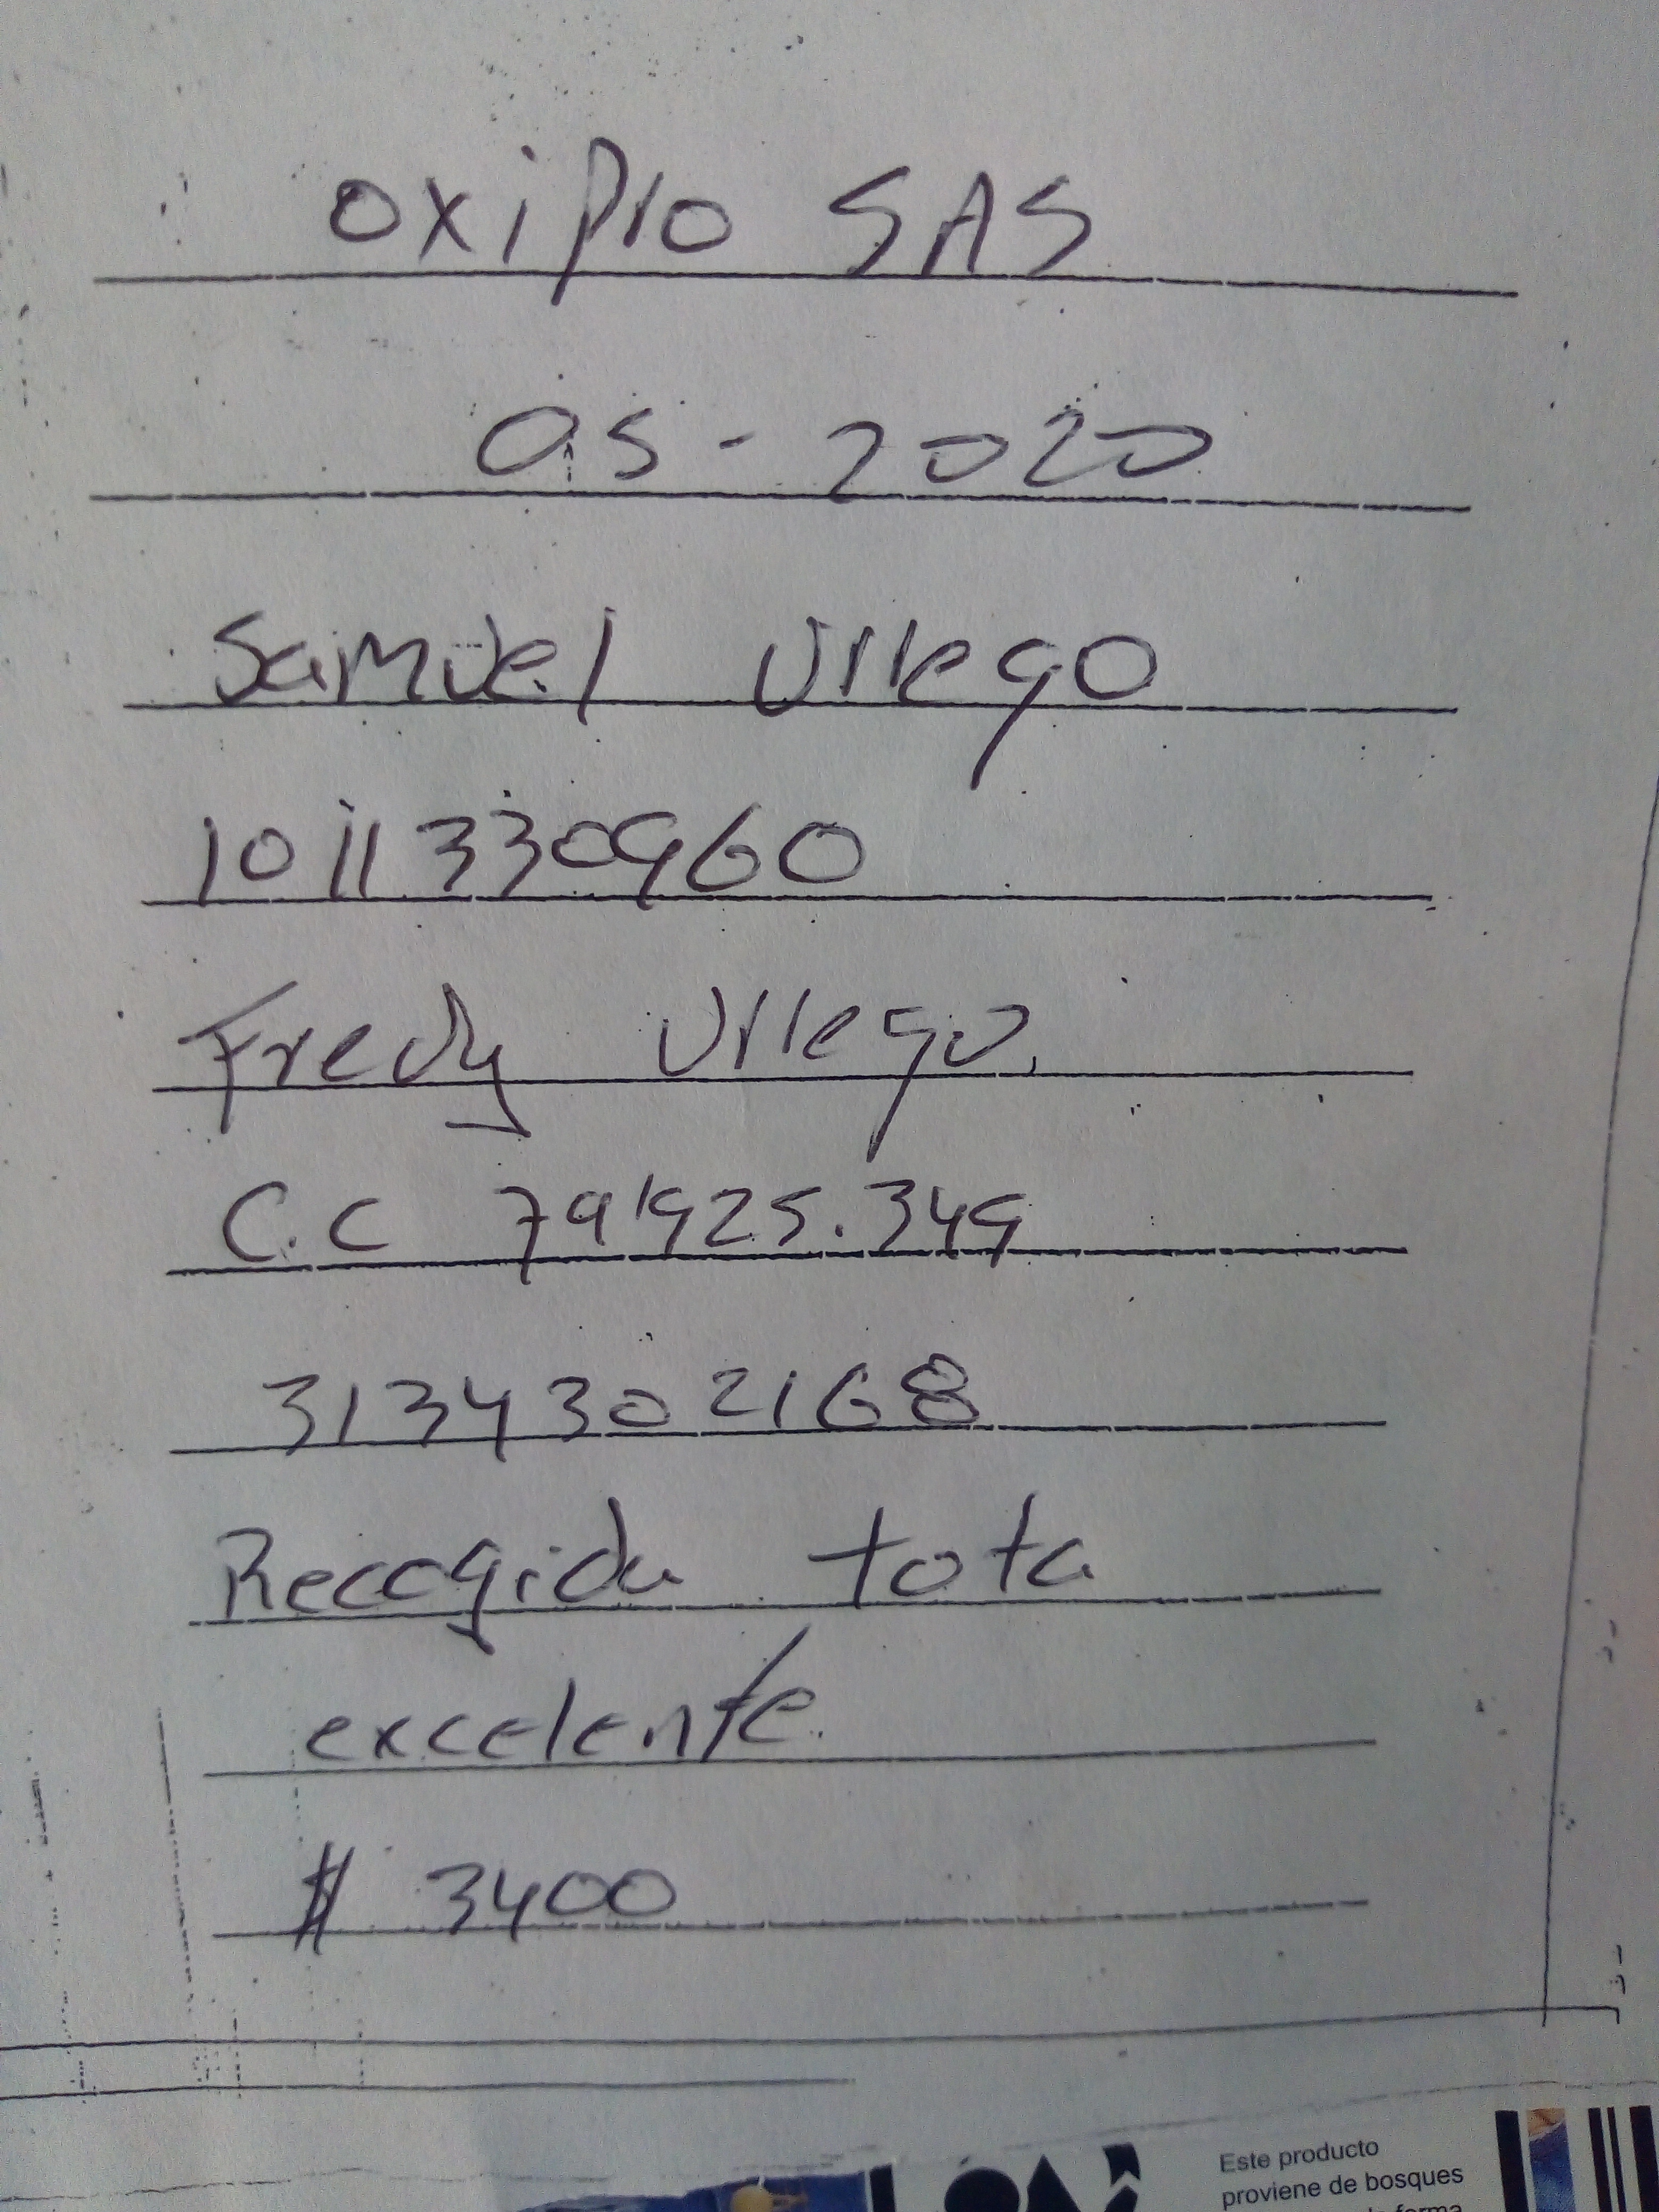 oxipro SAS
05-2020
Samuel Urrego
1011330960
Fredy Urrego.
C.C 79'925.349
3134302168
Recogida tota
excelente.
$ 3400
Este producto
proviene de bosques
forma